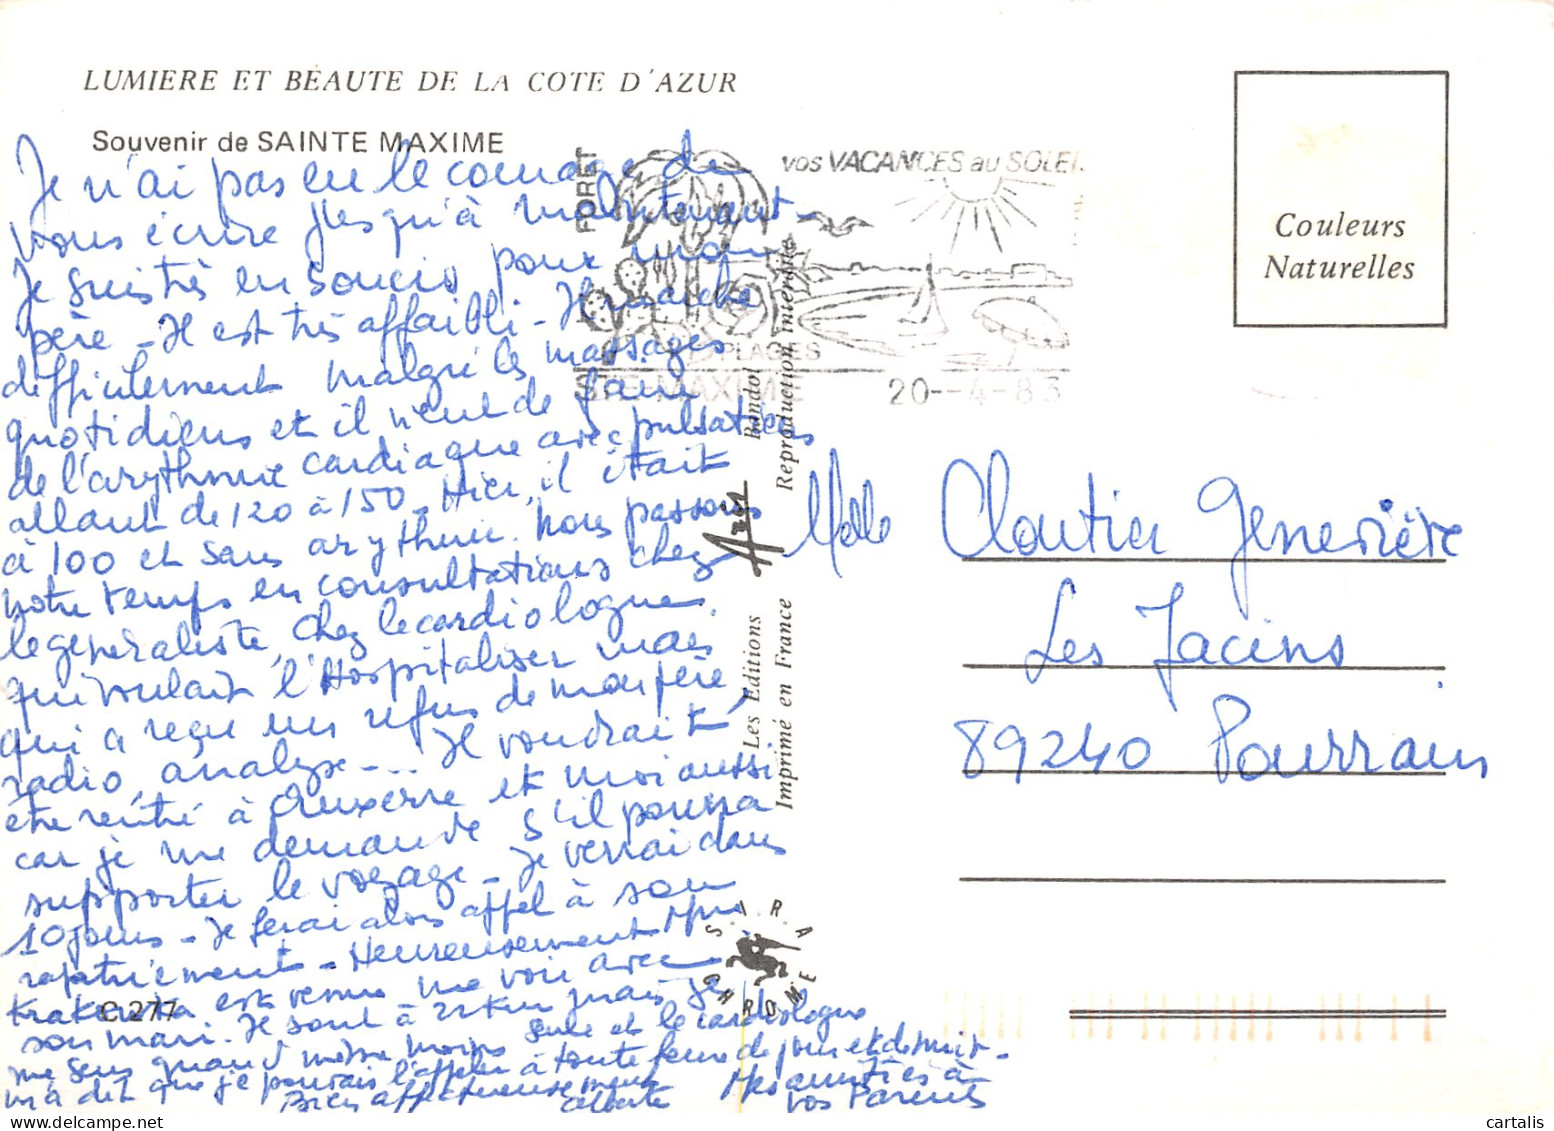 LUMIERE ET BEAUTE DE LA COTE D'AZUR
Souvenir de SAINTE MAXIME
Je n'ai pas eu le courage de
vous écrire jusqu'à maintenant -
Je suis très en soucis pour mon
père - Il est très affaibli - Il marche
difficilement malgré les massages
quotidiens et il vient de faire
de l'arythmie cardiaque avec pulsations
allant de 120 à 150 - Hier, il était
à 100 et sans arythmie. Nous passons
notre temps en consultations chez
le généraliste, chez le cardiologue,
qui voulait l'Hospitaliser mais
qui a reçu un refus de mon père,
radio, analyse - ... Il voudrait
être rentré à Auxerre et moi aussi
car je me demande s'il pourra
supporter le voyage - Je verrai dans
10 jours - Je ferai alors appel à son
rapatriement - Heureusement Mme
est venue me voir avec
son mari. Ils sont à 22 km mais je
me sens quand même moins seule et le cardiologue
m'a dit que je pouvais l'appeler à toute heure de jour et de nuit -
Bien affectueusement
Mes amitiés à
vos Parents
C.277
FORET
VOS VACANCES au SOLEIL
PLAGES
STE-MAXIME
20--4-83
Les Editions Aris Bandol
Imprimé en France
Reproduction interdite
S.I.R.A
CHROME
Couleurs
Naturelles
Melle Cloutier Geneviève
Les Jacins
89240 Pourrain
cartalis